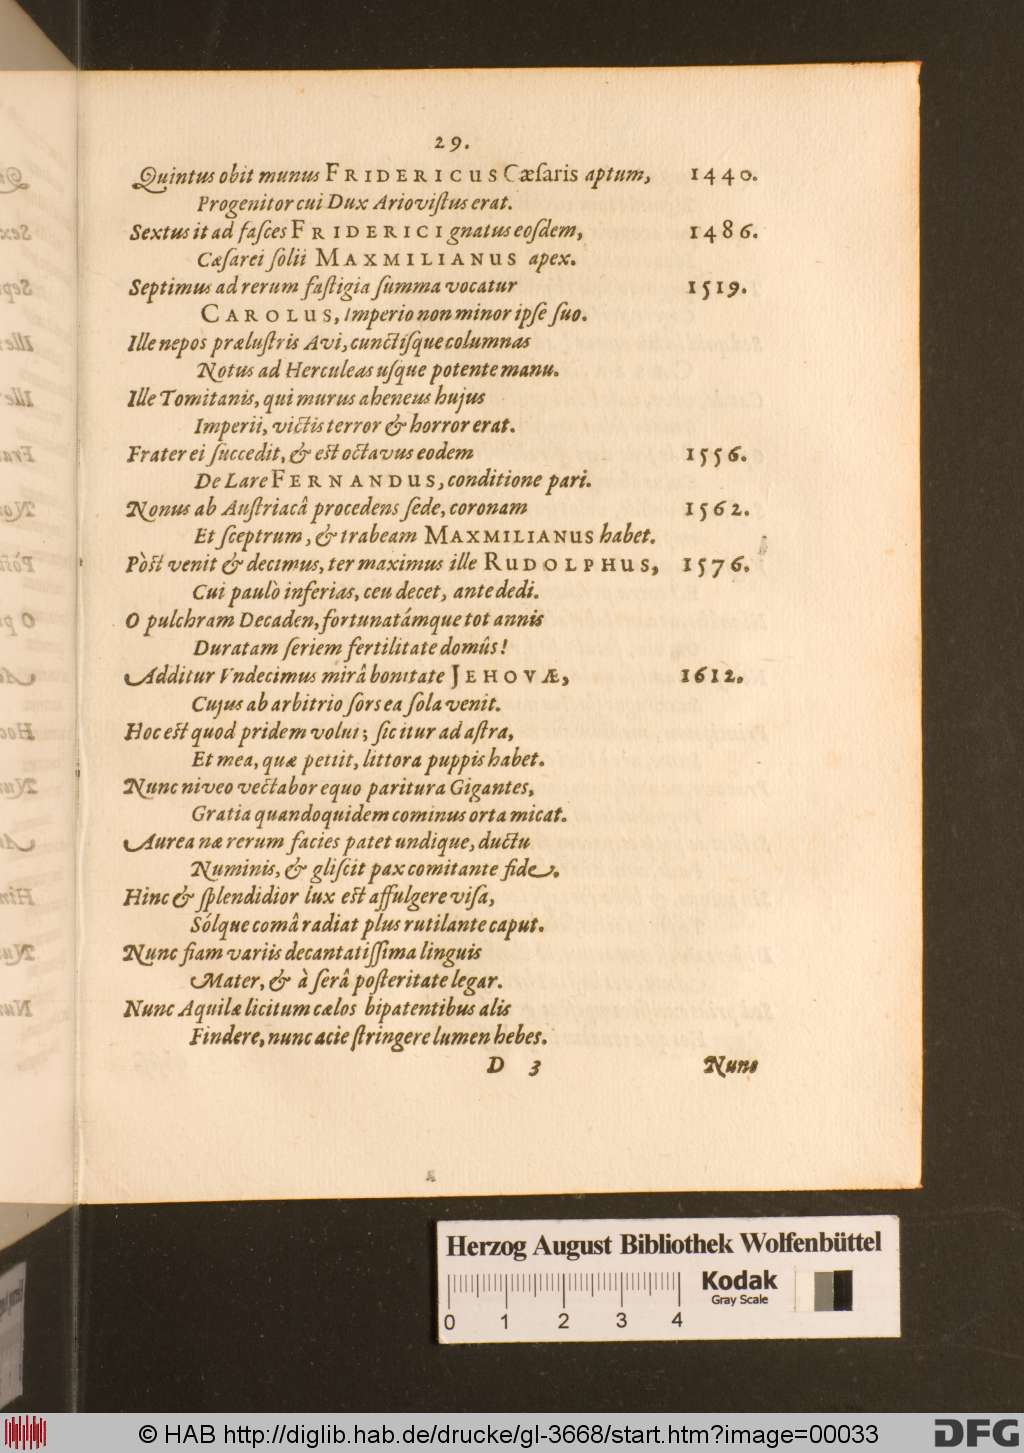 29.
Quintus obit munus FRIDERICUS Cæſaris aptum, 1440.
Progenitor cui Dux Arioviſtus erat.
Sextus it ad faſces FRIDERICI gnatus eoſdem, 1486.
Cæſarei ſolii MAXMILIANUS apex.
Septimus ad rerum faſtigia ſumma vocatur 1519.
CAROLUS, Imperio non minor ipſe ſuo.
Ille nepos præluſtris Avi, cunctiſque columnas
Notus ad Herculeas uſque potente manu.
Ille Tomitanis, qui murus aheneus hujus
Imperii, victis terror & horror erat.
Frater ei ſuccedit, & est octavus eodem 1556.
De Lare FERNANDUS, conditione pari.
Nonus ab Auſtriacâ procedens ſede, coronam 1562.
Et ſceptrum, & trabeam MAXMILIANUS habet.
Pòst venit & decimus, ter maximus ille RUDOLPHUS, 1576.
Cui paulò inferias, ceu decet, ante dedi.
O pulchram Decaden, fortunatámque tot annis
Duratam ſeriem fertilitate domûs!
Additur Vndecimus mirâ bonitate JEHOVÆ, 1612.
Cujus ab arbitrio ſors ea ſola venit.
Hoc est quod pridem volui; ſic itur ad aſtra,
Et mea, quæ petiit, littora puppis habet.
Nunc niveo vectabor equo paritura Gigantes,
Gratia quandoquidem cominus orta micat.
Aurea næ rerum facies patet undique, ductu
Numinis, & gliſcit pax comitante fide.
Hinc & ſplendidior lux est affulgere viſa,
Sólque comâ radiat plus rutilante caput.
Nunc fiam variis decantatiſſima linguis
Mater, & à ſerâ poſteritate legar.
Nunc Aquilæ licitum cælos bipatentibus alis
Findere, nunc acie ſtringere lumen hebes.
D 3 Nunc
Herzog August Bibliothek Wolfenbüttel
Kodak
Gray Scale
0 1 2 3 4
© HAB http://diglib.hab.de/drucke/gl-3668/start.htm?image=00033
DFG